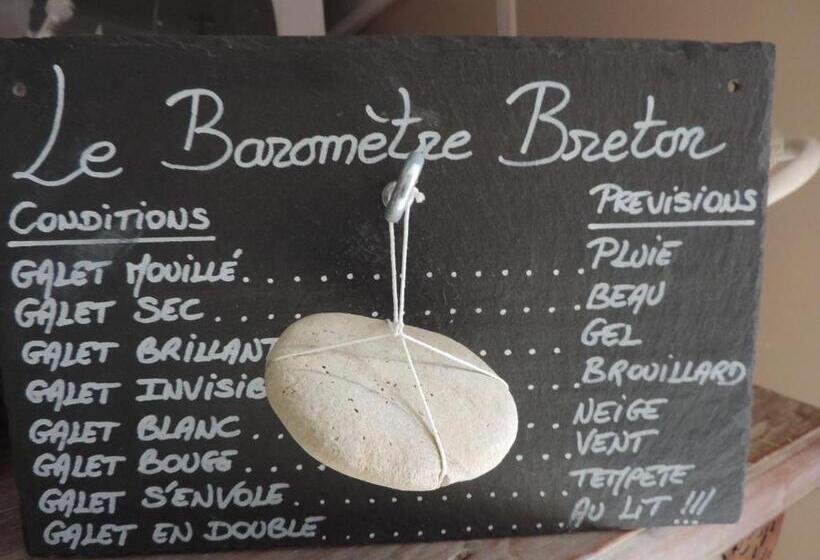 Le Baromètre Breton
CONDITIONS PREVISIONS
GALET MOUILLÉ. . . . . . . . . . . . . . . . . . . PLUIE
GALET SEC . . . . . . . . . . . . . . . . . . . BEAU
GALET BRILLANT . . . . GEL
GALET INVISIB . . . BROUILLARD
GALET BLANC . . . . . . NEIGE
GALET BOUGE . . . . . . . . VENT
GALET S'ENVOLE . . . . . . . . . . . . . TEMPETE
GALET EN DOUBLE . . . . . . . . . . . . AU LIT !!!